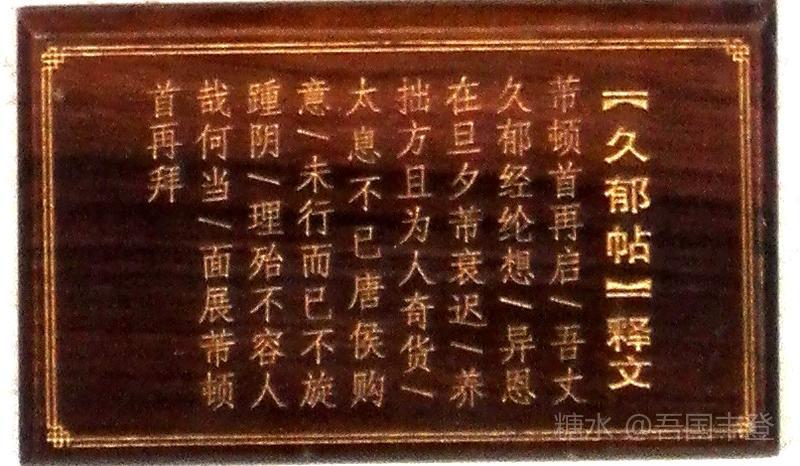 【久郁帖】释文
芾顿首再启/吾丈
久郁经纶想/异恩
在旦夕芾衰迟/养
拙方且为人奇货/
太息不已唐侯购
意/未行而已不旋
踵阴/理殆不容人
哉何当/面展芾顿
首再拜
糖水 @吾国丰登